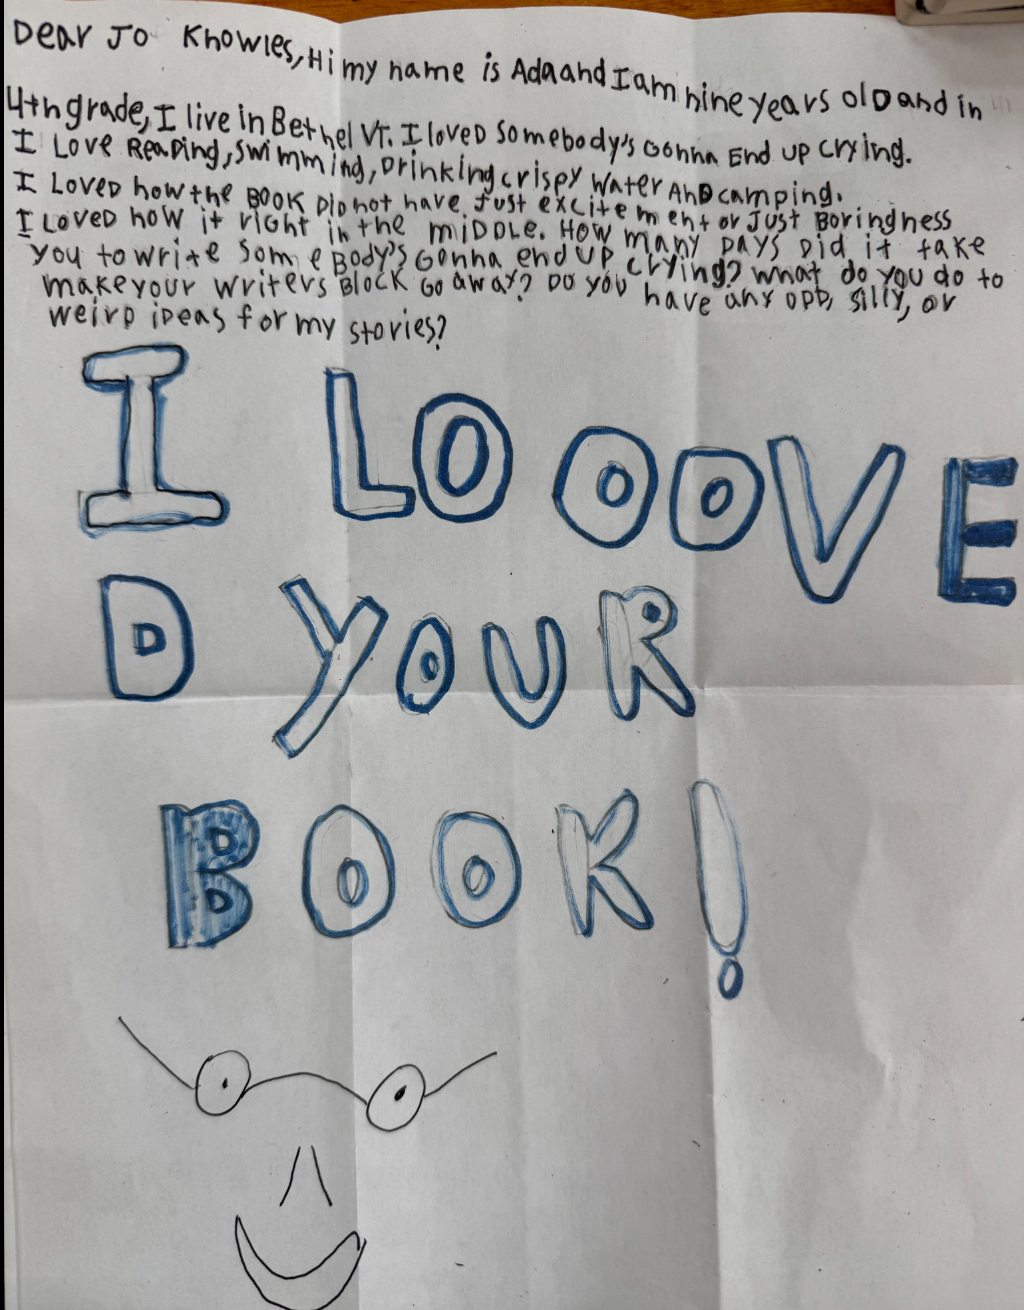 Dear Jo Knowles, Hi my name is Ada and I am nine years old and in
4th grade, I live in Bethel VT. I loved Somebody's Gonna End up crying.
I Love Reading, swimming, Drinking crispy water And camping.
I Loved how the Book Did not have Just excitement or Just Boringness
I Loved how it right in the miDDLe. How many Days Did it take
you to write SomeBody's Gonna end up crying? what do you do to
make your writers Block Go away? Do you have any oDD, silly, or
weirD iDeas for my stories?
I LOOOVE
D YOUR
BOOK!